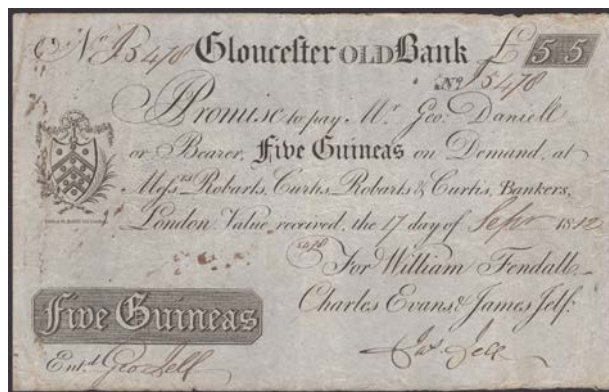 No J5478 Gloucester OLD Bank £ 5 5
No J5478
Promise to pay Mr. Geo: Daniell
or Bearer, Five Guineas on Demand, at
Messrs Robarts, Curtis, Robarts & Curtis, Bankers,
London Value received, the 17 day of Sepr 1812
For William Fendall,
Charles Evans & James Jelf:
Jas. Jelf
Five Guineas
Entd. Geo Jelf